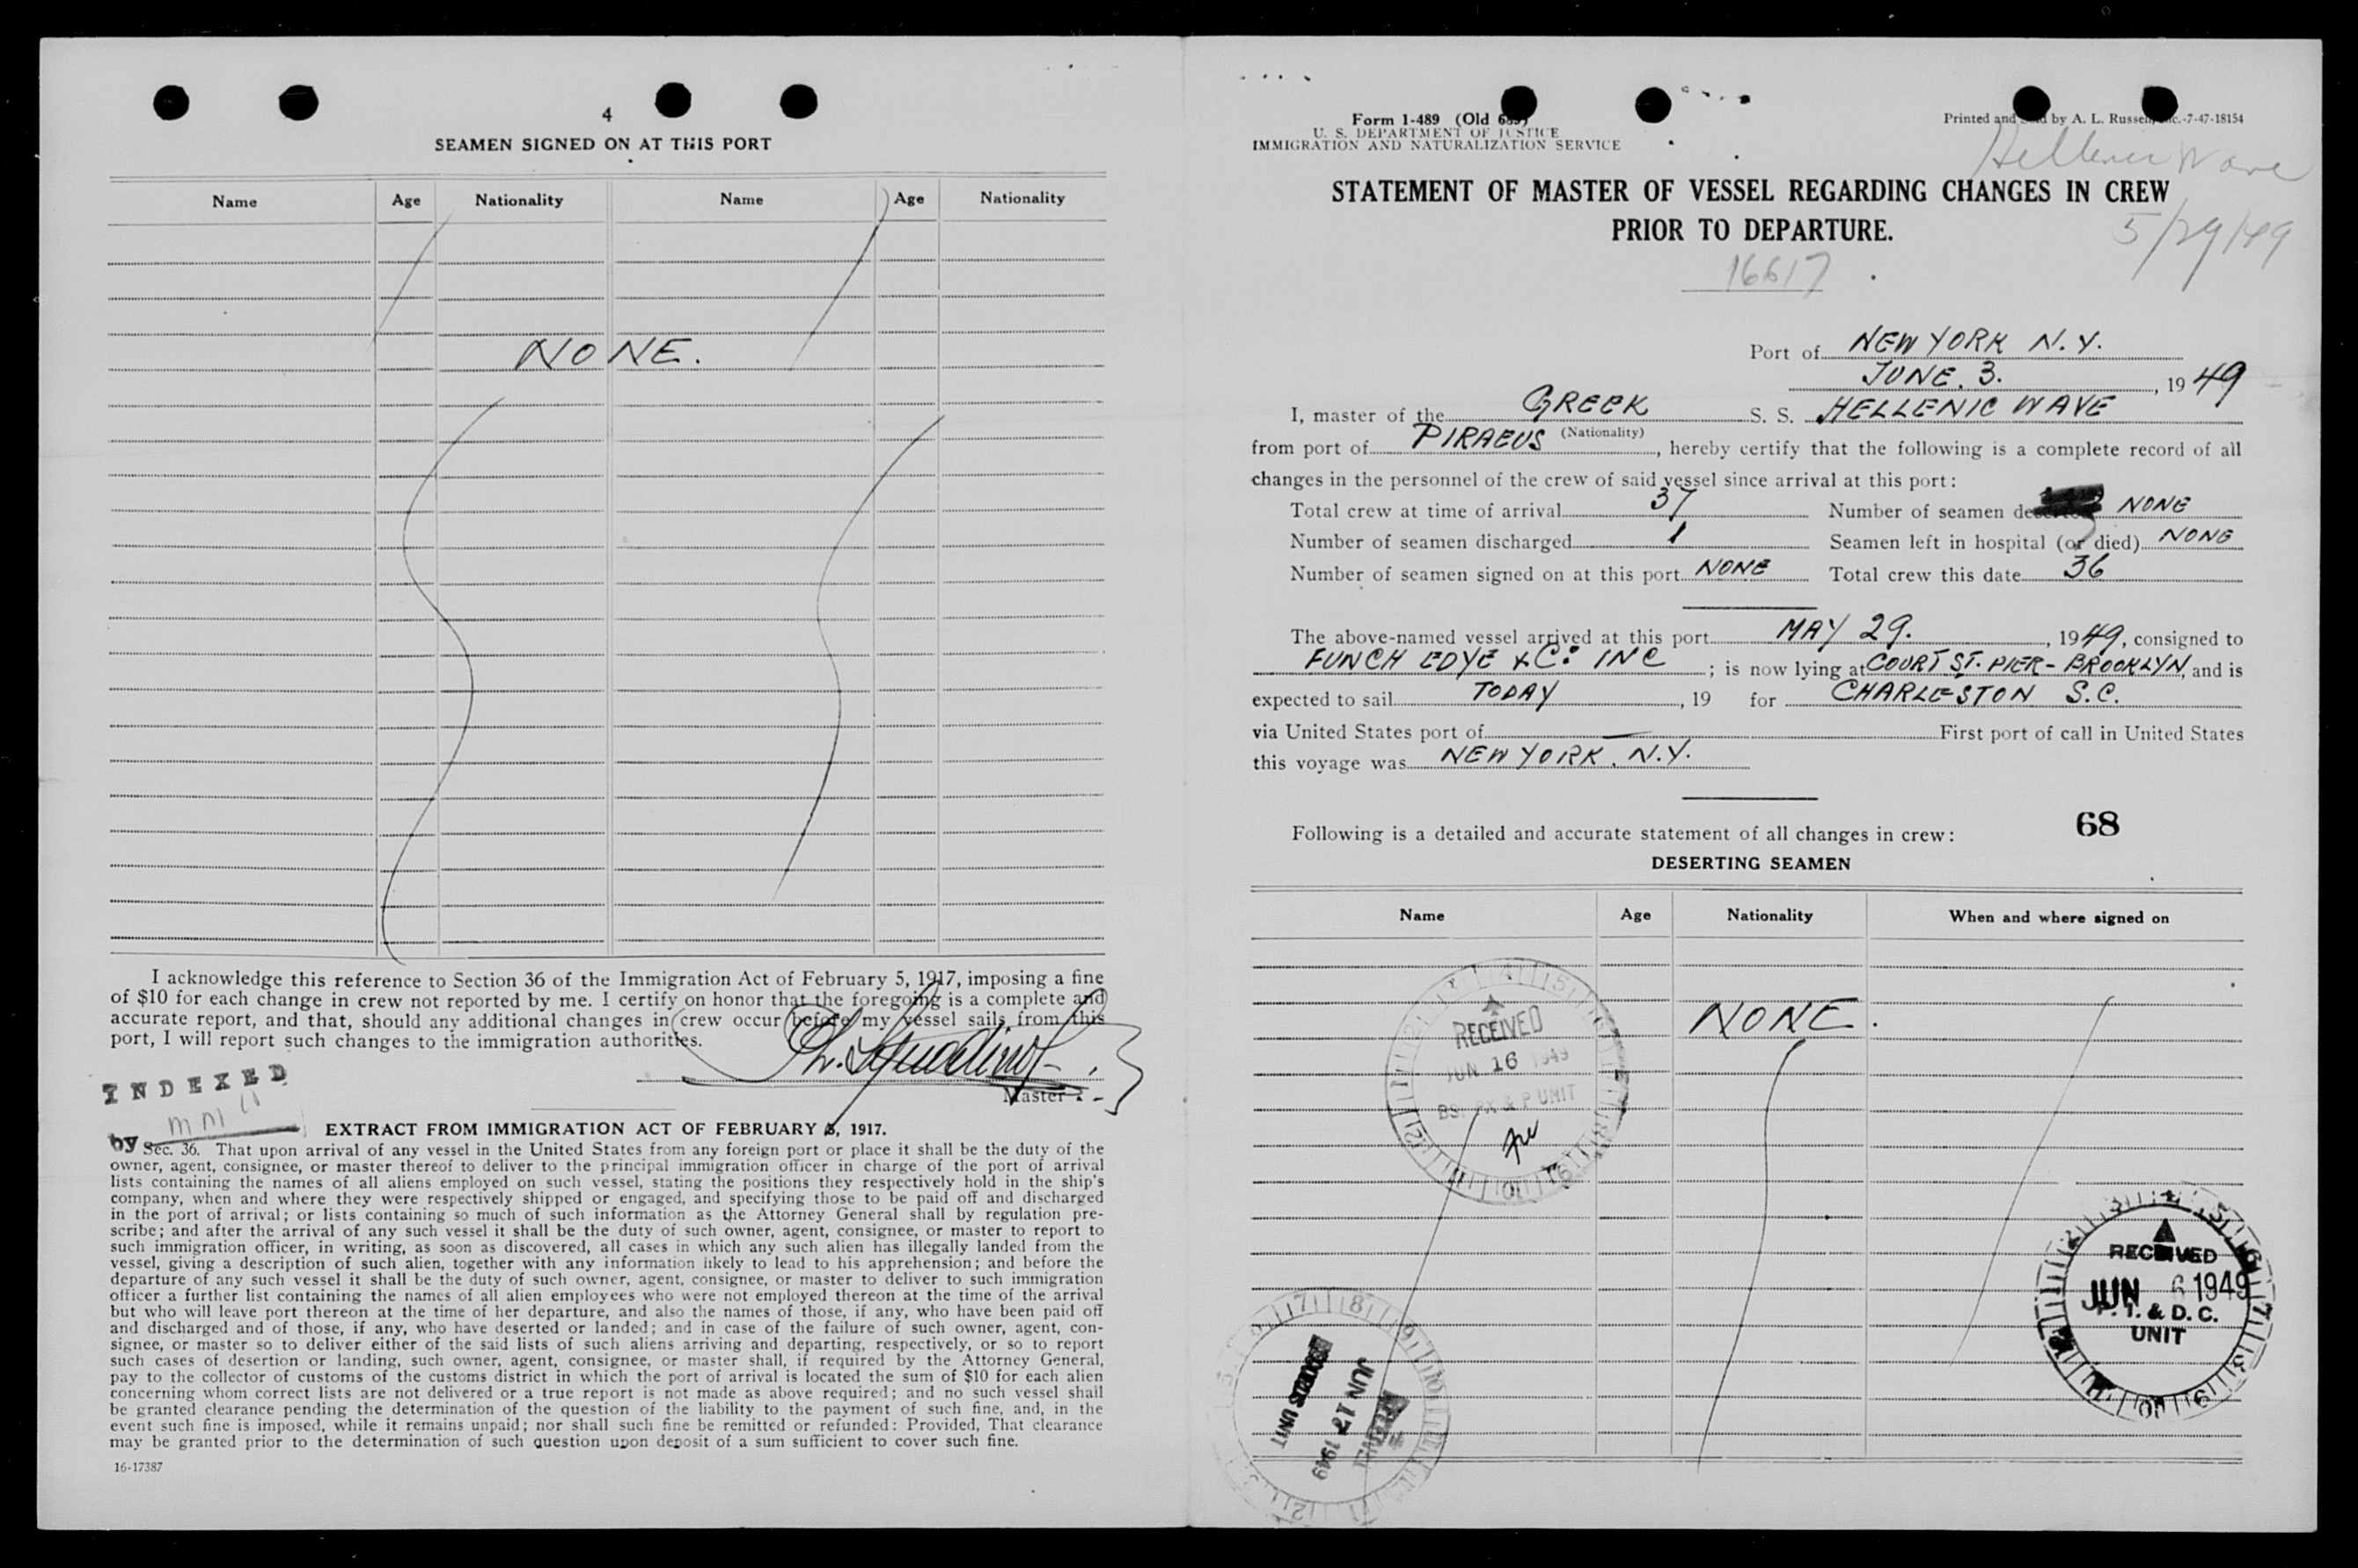 4
SEAMEN SIGNED ON AT THIS PORT
Name Age Nationality Name Age Nationality
NONE.
I acknowledge this reference to Section 36 of the Immigration Act of February 5, 1917, imposing a fine
of $10 for each change in crew not reported by me. I certify on honor that the foregoing is a complete and
accurate report, and that, should any additional changes in crew occur before my vessel sails from this
port, I will report such changes to the immigration authorities.
Master.
INDEXED
by
EXTRACT FROM IMMIGRATION ACT OF FEBRUARY 5, 1917.
Sec. 36. That upon arrival of any vessel in the United States from any foreign port or place it shall be the duty of the
owner, agent, consignee, or master thereof to deliver to the principal immigration officer in charge of the port of arrival
lists containing the names of all aliens employed on such vessel, stating the positions they respectively hold in the ship's
company, when and where they were respectively shipped or engaged, and specifying those to be paid off and discharged
in the port of arrival; or lists containing so much of such information as the Attorney General shall by regulation pre-
scribe; and after the arrival of any such vessel it shall be the duty of such owner, agent, consignee, or master to report to
such immigration officer, in writing, as soon as discovered, all cases in which any such alien has illegally landed from the
vessel, giving a description of such alien, together with any information likely to lead to his apprehension; and before the
departure of any such vessel it shall be the duty of such owner, agent, consignee, or master to deliver to such immigration
officer a further list containing the names of all alien employees who were not employed thereon at the time of the arrival
but who will leave port thereon at the time of her departure, and also the names of those, if any, who have been paid off
and discharged and of those, if any, who have deserted or landed; and in case of the failure of such owner, agent, con-
signee, or master so to deliver either of the said lists of such aliens arriving and departing, respectively, or so to report
such cases of desertion or landing, such owner, agent, consignee, or master shall, if required by the Attorney General,
pay to the collector of customs of the customs district in which the port of arrival is located the sum of $10 for each alien
concerning whom correct lists are not delivered or a true report is not made as above required; and no such vessel shall
be granted clearance pending the determination of the question of the liability to the payment of such fine, and, in the
event such fine is imposed, while it remains unpaid; nor shall such fine be remitted or refunded: Provided, That clearance
may be granted prior to the determination of such question upon deposit of a sum sufficient to cover such fine.
16-17387
Form 1-489 (Old 689)
U. S. DEPARTMENT OF JUSTICE
IMMIGRATION AND NATURALIZATION SERVICE
Printed and Sold by A. L. Russell, Inc.-7-47-18154
Hellenic Wave
STATEMENT OF MASTER OF VESSEL REGARDING CHANGES IN CREW
PRIOR TO DEPARTURE.
5/29/49
16617
Port of NEW YORK N.Y.
JUNE. 3. , 19 49
I, master of the GREEK S. S. HELLENIC WAVE
(Nationality)
from port of PIRAEUS , hereby certify that the following is a complete record of all
changes in the personnel of the crew of said vessel since arrival at this port:
Total crew at time of arrival 37 Number of seamen deserted NONE
Number of seamen discharged 1 Seamen left in hospital (or died) NONE
Number of seamen signed on at this port NONE Total crew this date 36
The above-named vessel arrived at this port MAY 29. , 1949, consigned to
FUNCH EDYE & Co INC ; is now lying at COURT ST. PIER - BROOKLYN, and is
expected to sail TODAY , 19 for CHARLESTON S.C.
via United States port of — First port of call in United States
this voyage was NEW YORK. N.Y.
68
Following is a detailed and accurate statement of all changes in crew:
DESERTING SEAMEN
Name Age Nationality When and where signed on
NONE.
RECEIVED
JUN 16 1949
UNIT
RECEIVED
JUN 6 1949
P. T. & D. C.
UNIT
UNIT
JUN 17 1949